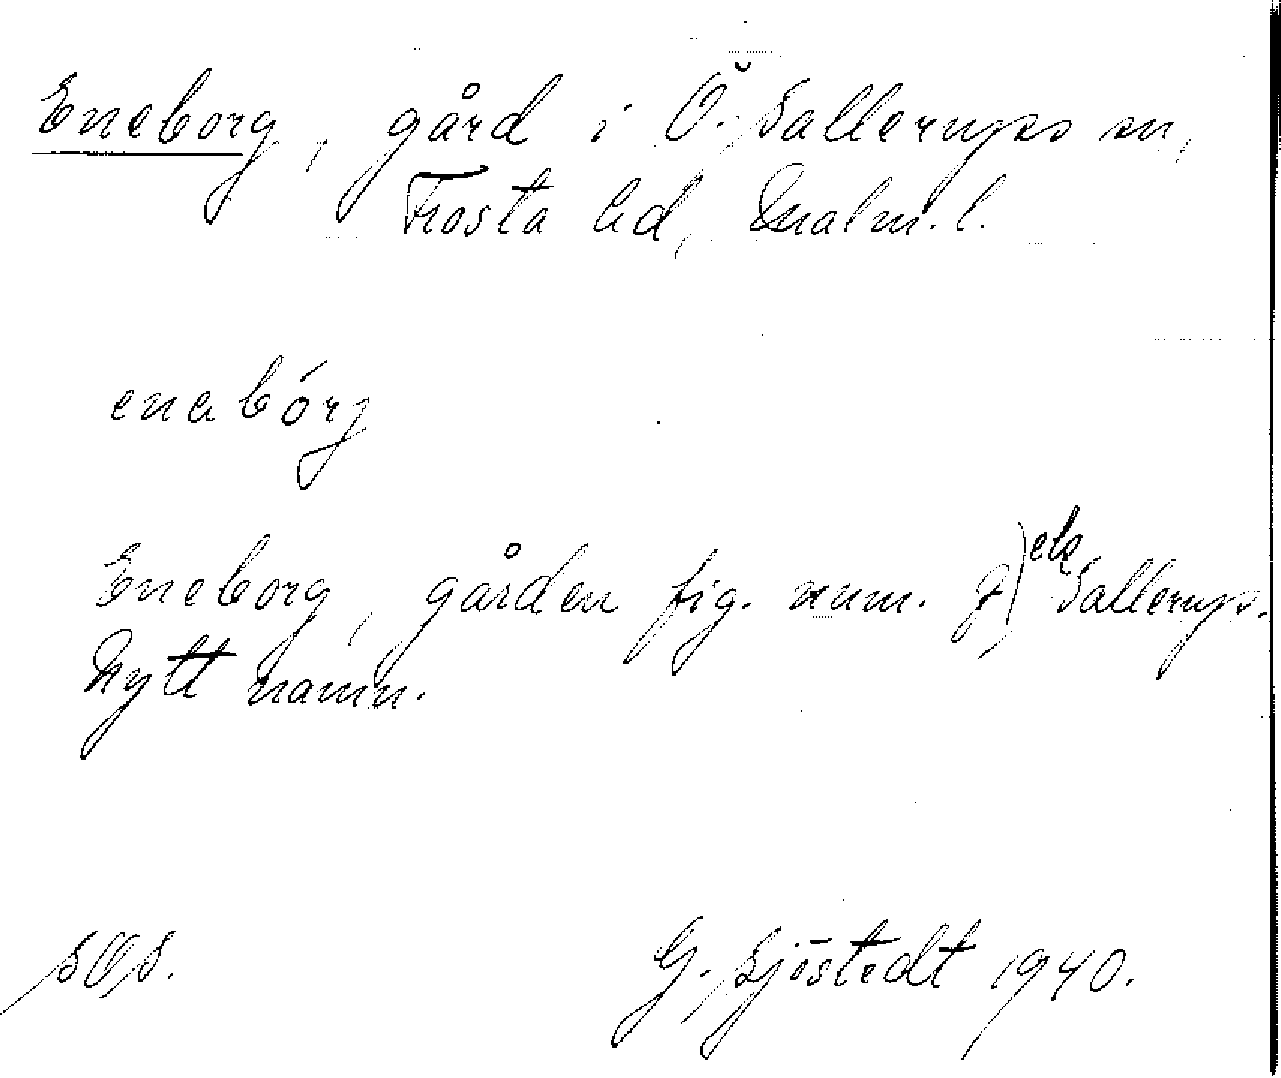 Eneborg, gård i Ö. Sallerups sn,
Frosta hd, Malm. l.
enabórg
Eneborg, gården fig. num. 7) Sallerup.
Nytt namn.
SOS. G. Sjöstedt 1940.